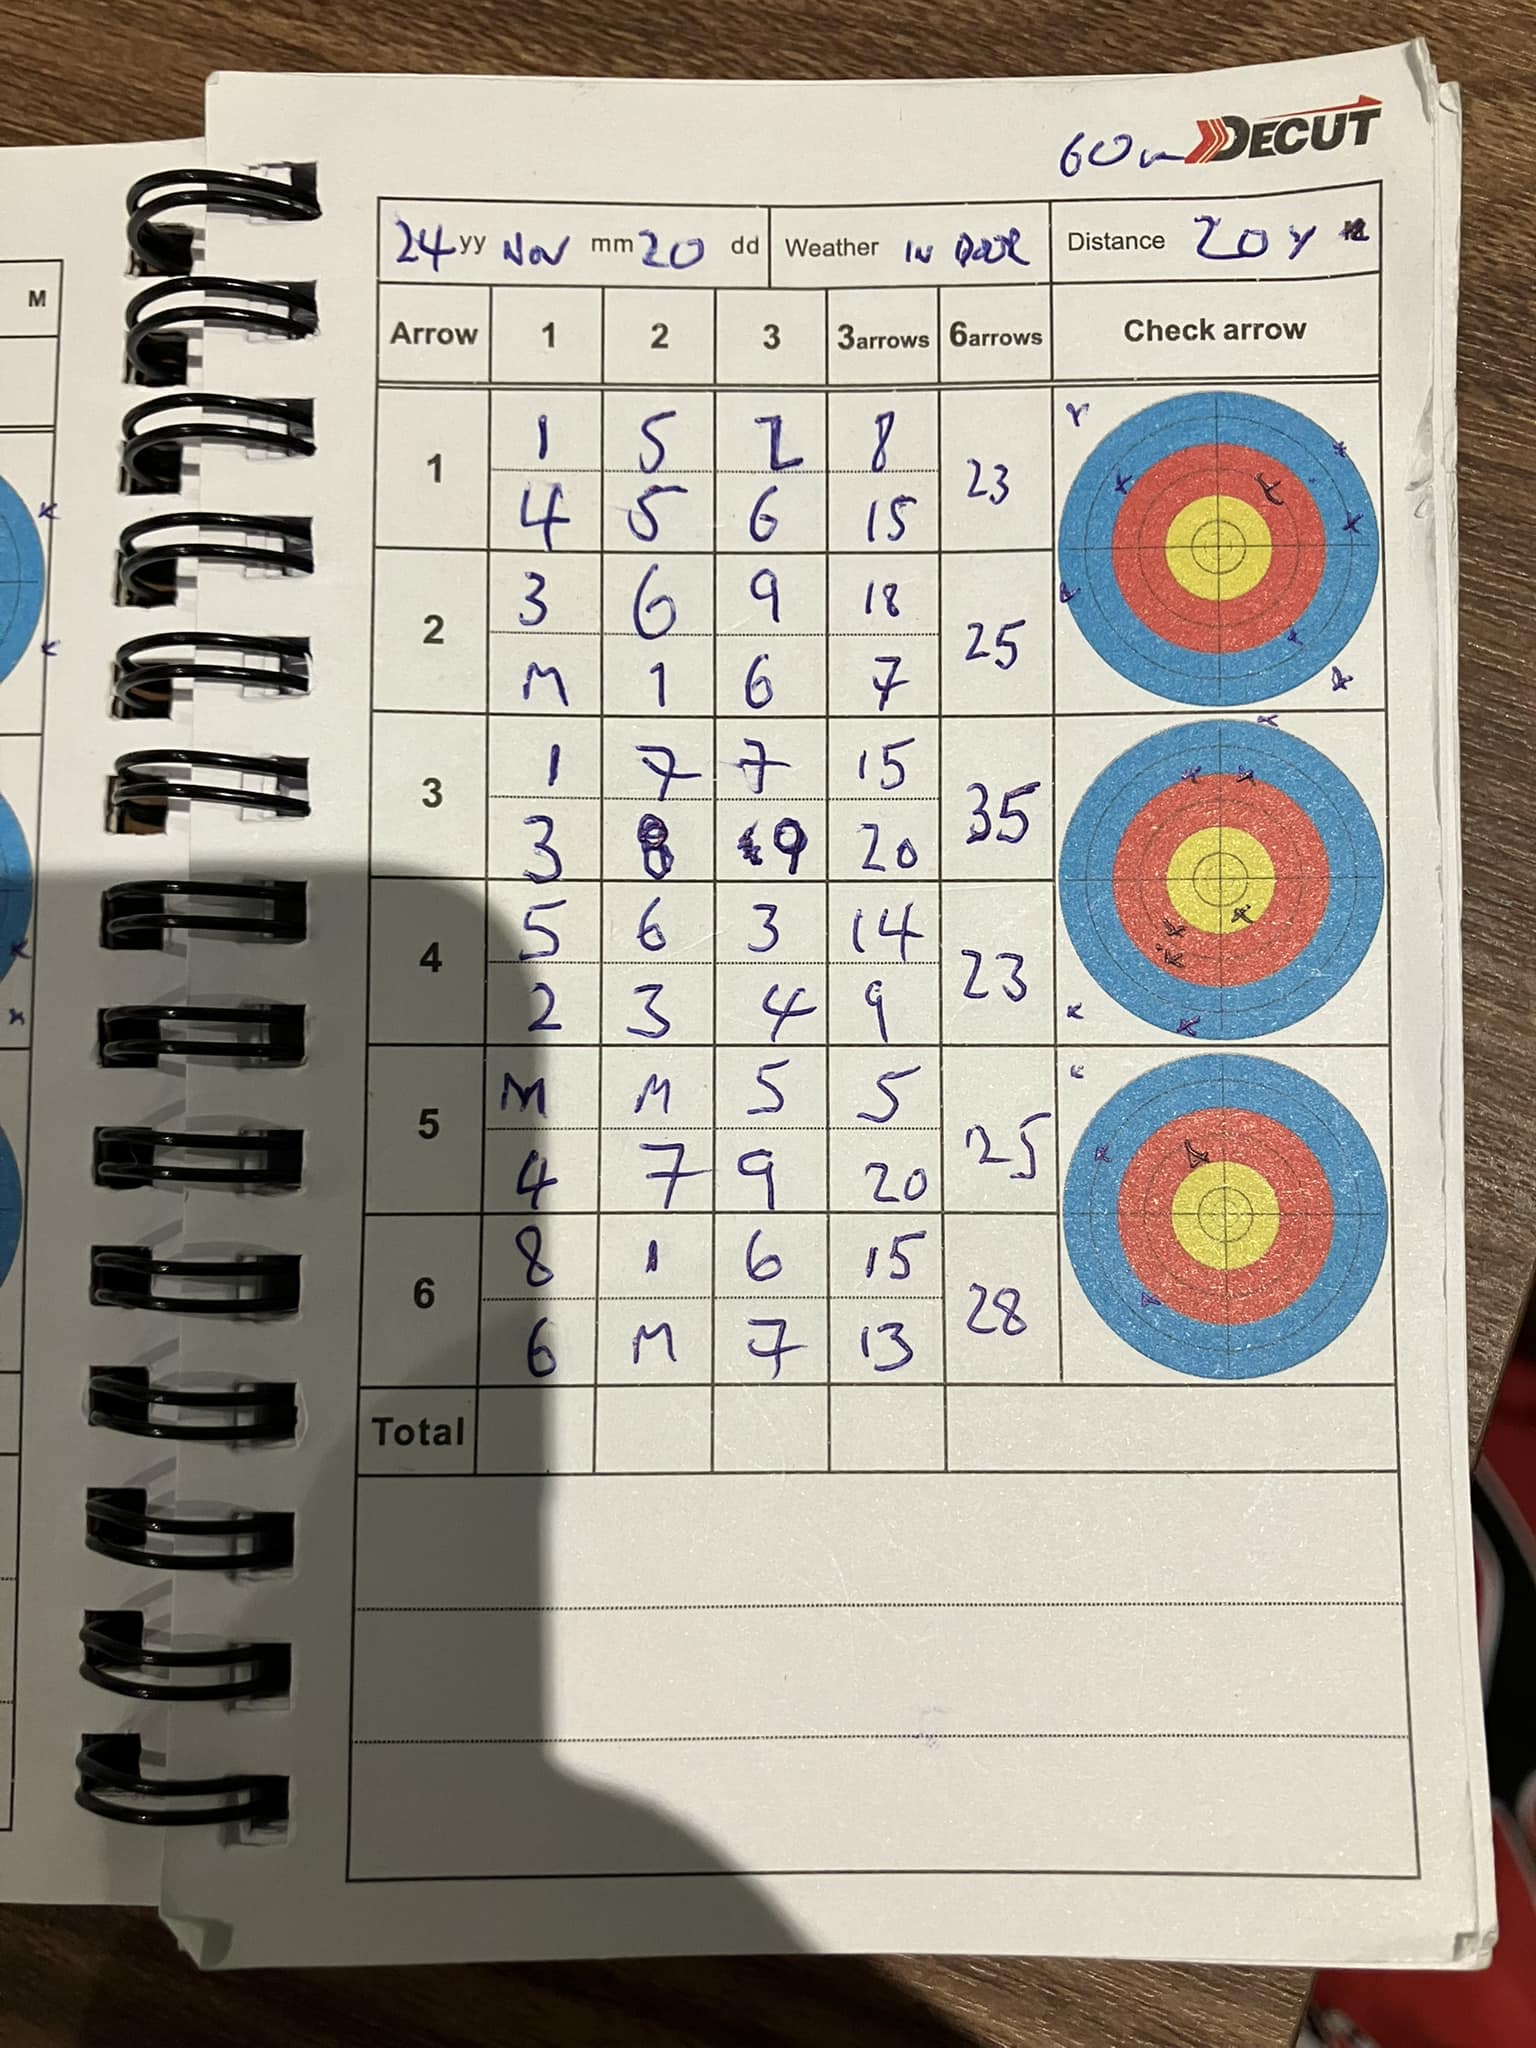 60cm DECUT
24 yy Nov mm 20 dd Weather IN DOOR Distance 20 Y
M
Arrow 1 2 3 3arrows 6arrows Check arrow
1 1 5 2 8 23
4 5 6 15
2 3 6 9 18 25
M 1 6 7
3 1 7 7 15 35
3 8 9 20
4 5 6 3 14 23
2 3 4 9
5 M M 5 5 25
4 7 9 20
6 8 1 6 15 28
6 M 7 13
Total